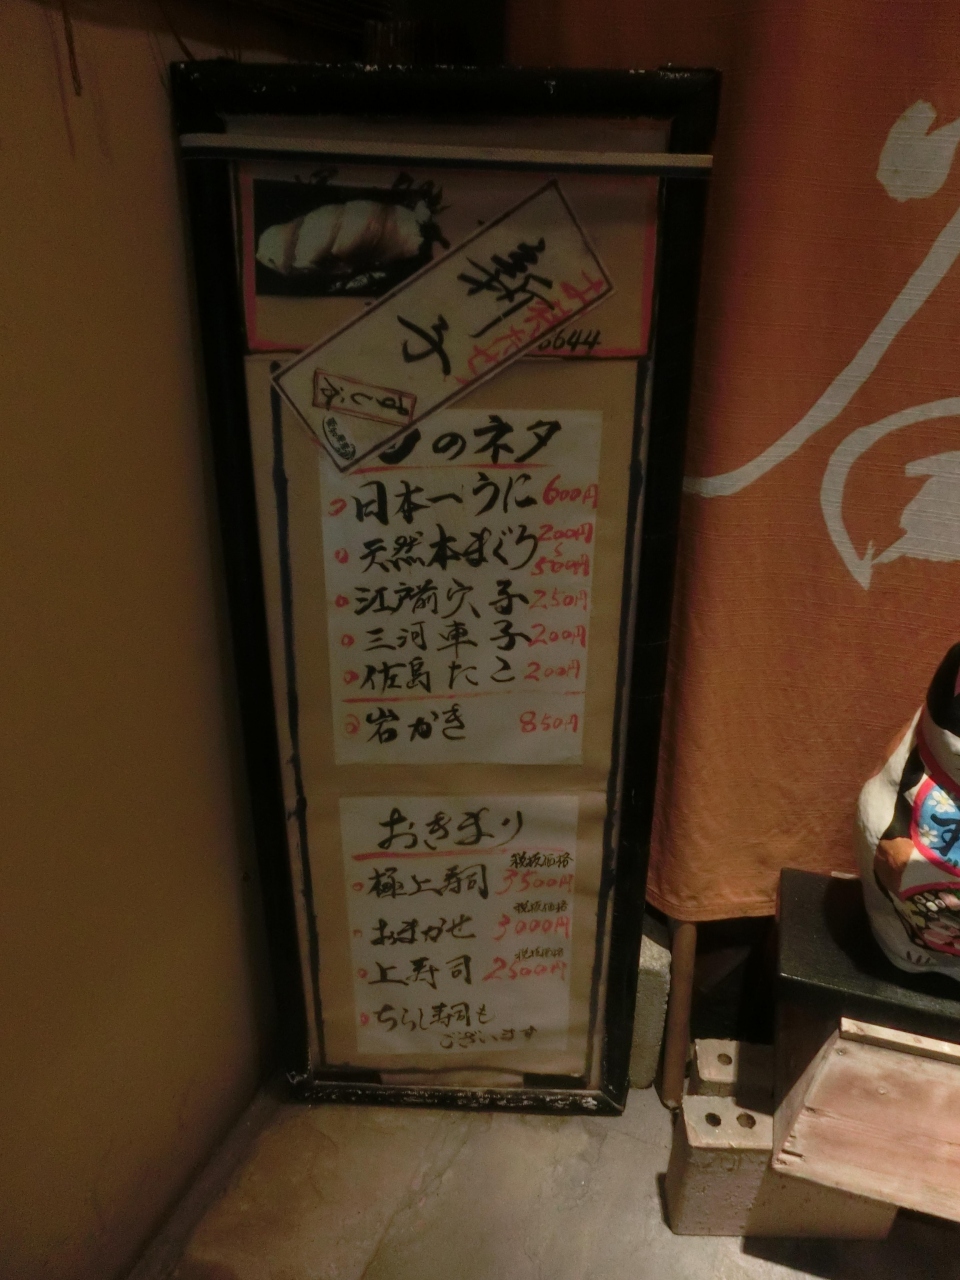 新子
すし谷
6644
のネタ
日本一うに 600円
天然本まぐろ 200円〜500円
江戸前穴子 250円
三河車子 200円
佐島たこ 200円
岩かき 850円
おきまり
税抜価格
極上寿司 3500円
税抜価格
おまかせ 3000円
税抜価格
上寿司 2500円
ちらし寿司も
ございます